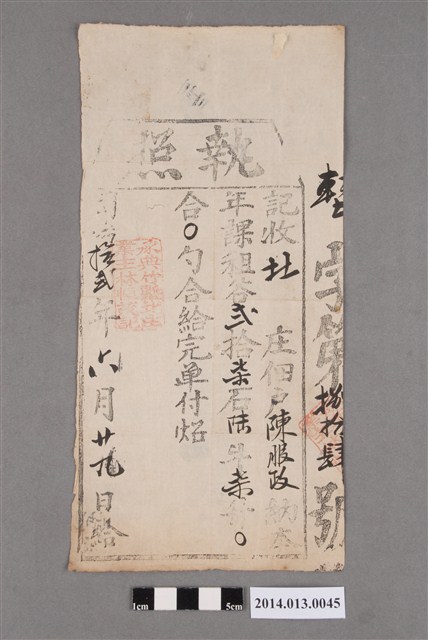 執照
字第捌拾肆號
記收北庄佃戶陳服政納本
年課租谷貳拾柒石陸斗柒升〇
合〇勺合給完單付炤
拾貳年六月廿九日給
1cm
5cm
2014.013.0045